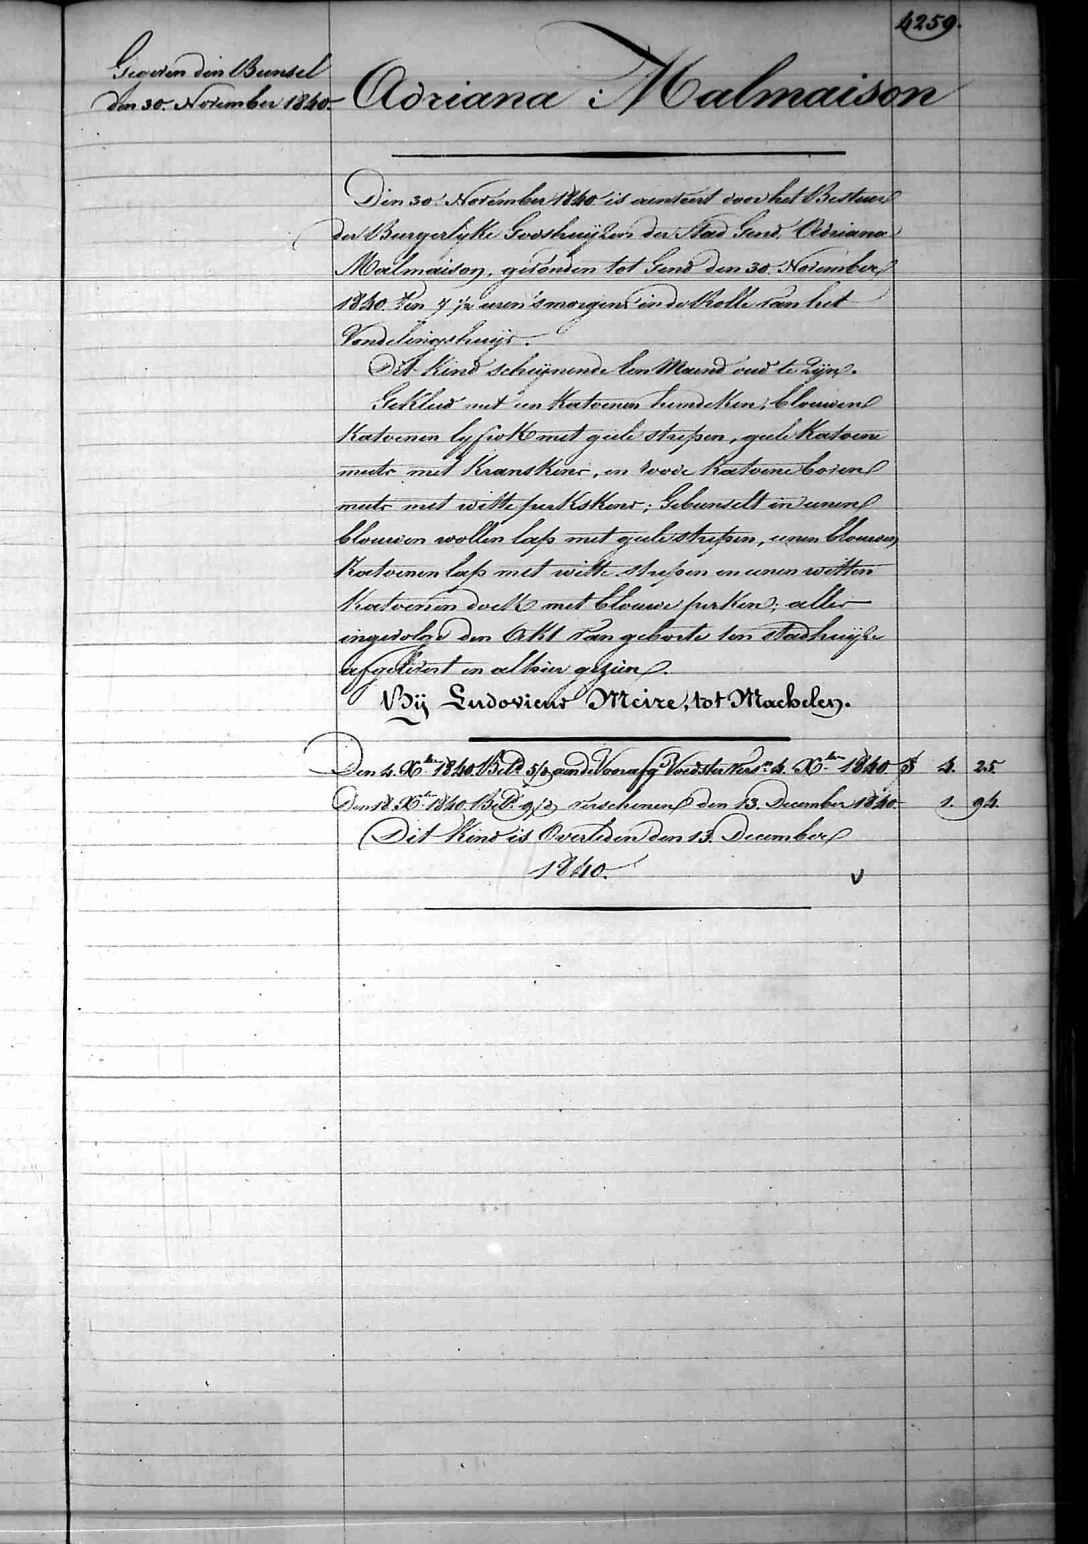 4259.
Gegeven den Bunsel
den 30. November 1840.
Adriana Malmaison
Den 30. November 1840 is aenveert door het Bestuer
der Burgerlyke Godshuijzen der Stad Gend, Adriana
Malmaison, gevonden tot Gend den 30. November
1840. ten 7 1/2 uren 's morgens in de Rolle van het
Vondelingshuijs.
Dit Kind scheijnende een Maend oud te Zijn.
Gekleed met een Katoenen hemdeken, blouwen
Katoenen lyfrok met geele strepen, geele Katoene
muts met Kranskens, en roode Katoene boven
muts met witte perkskens; Gebunselt in eenen
blouwen wollen lap met geele strepen, eenen blouwen
Katoenen lap met witte strepen en eenen witten
Katoenen doek met blouwe perken; alles
ingevolge den Akt van geboorte ten stadhuijze
afgelevert en alhier gezien.
Bij Ludovicus Meire, tot Machelen.
Den 4. Xber 1840. Betd. 5/ aende Voorafg. Voedster Versn. 4. Xber 1840 4. 25.
Den 18. Xber 1840. Betd. 9/ verschenen den 13. December 1840 1. 94.
Dit Kind is Overleden den 13. December
1840.